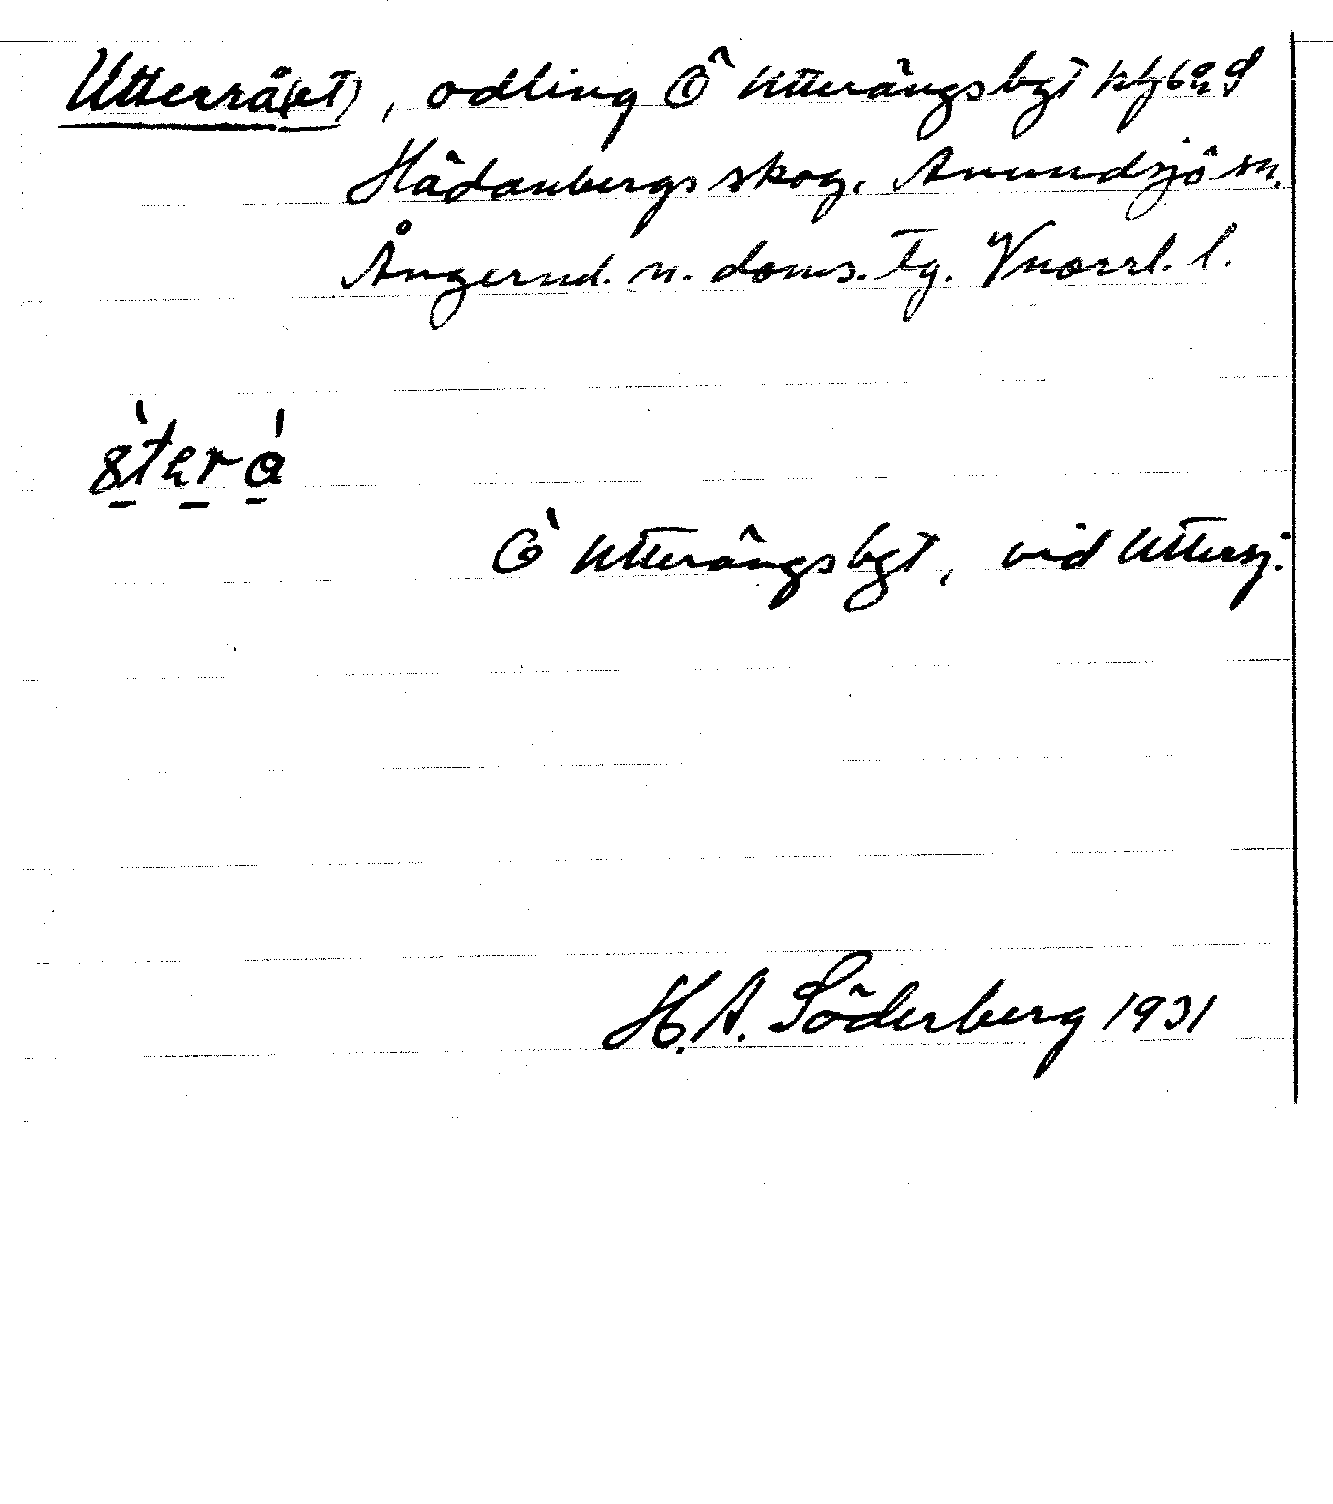 Utterrå(et), odling Ö Utterängsbgt
Hädanbergs skog. Anundsjö sn.
Ångermd. n. doms. tg. Vnorrl. l.
Ö Utterängsbgt, vid Uttersj.
H. A. Söderberg 1931